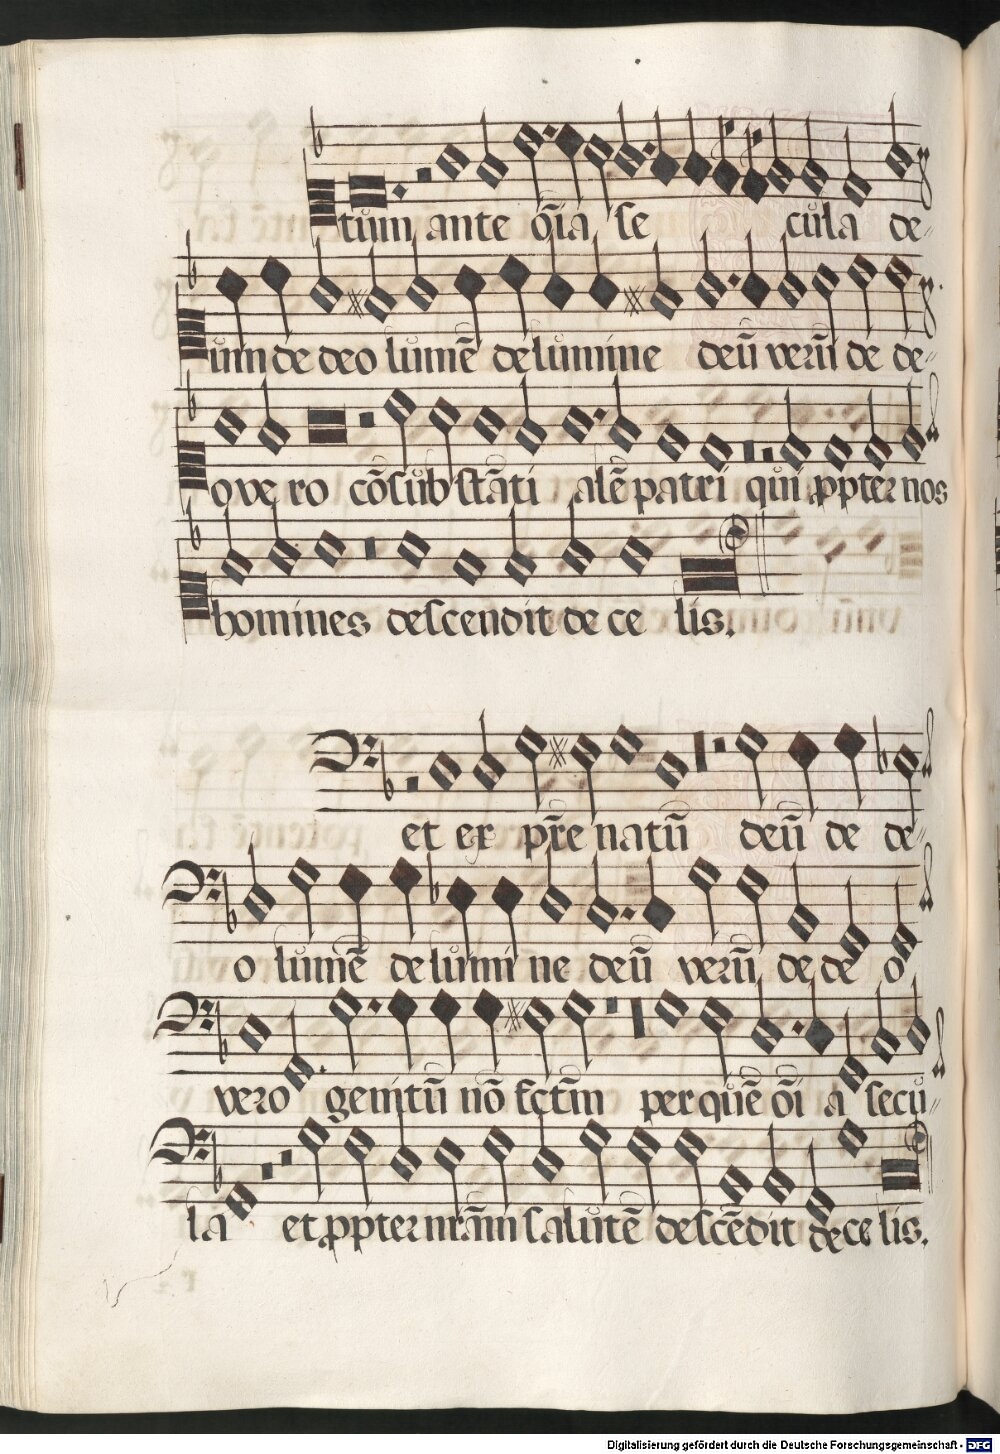 tum ante o̅ia se cula de=
um de deo lume̅ de lumine deu̅ veru̅ de de=
o ve ro co̅substa̅ti ale̅ patri qui ꝓpter nos
homines descendit de ce lis.
et ex pr̅e natu̅ deu̅ de de=
o lume̅ de lumi ne deu̅ veru̅ de de o
vero genitu̅ no̅ fctm̅ per que̅ o̅i a secu=
la et ꝓpter nra̅m salute̅ desce̅dit de ce lis.
Digitalisierung gefördert durch die Deutsche Forschungsgemeinschaft - DFG